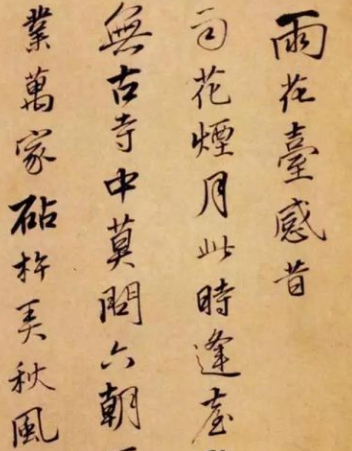 雨花臺感昔
司花煙月此時逢臺
無古寺中莫問六朝
業萬家砧杵美秋風